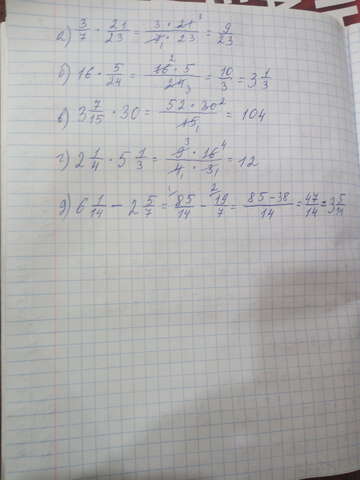 а) 3/7 · 21/23 = 3 · 21³ / 7₁ · 23 = 9/23
б) 16 · 5/24 = 16² · 5 / 24₃ = 10/3 = 3 1/3
в) 3 7/15 · 30 = 52 · 30² / 15₁ = 104
г) 2 1/4 · 5 1/3 = 9³ · 16⁴ / 4₁ · 3₁ = 12
д) 6 1/14 - 2 5/7 = ¹⁾85/14 - ²⁾19/7 = 85-38/14 = 47/14 = 3 5/14